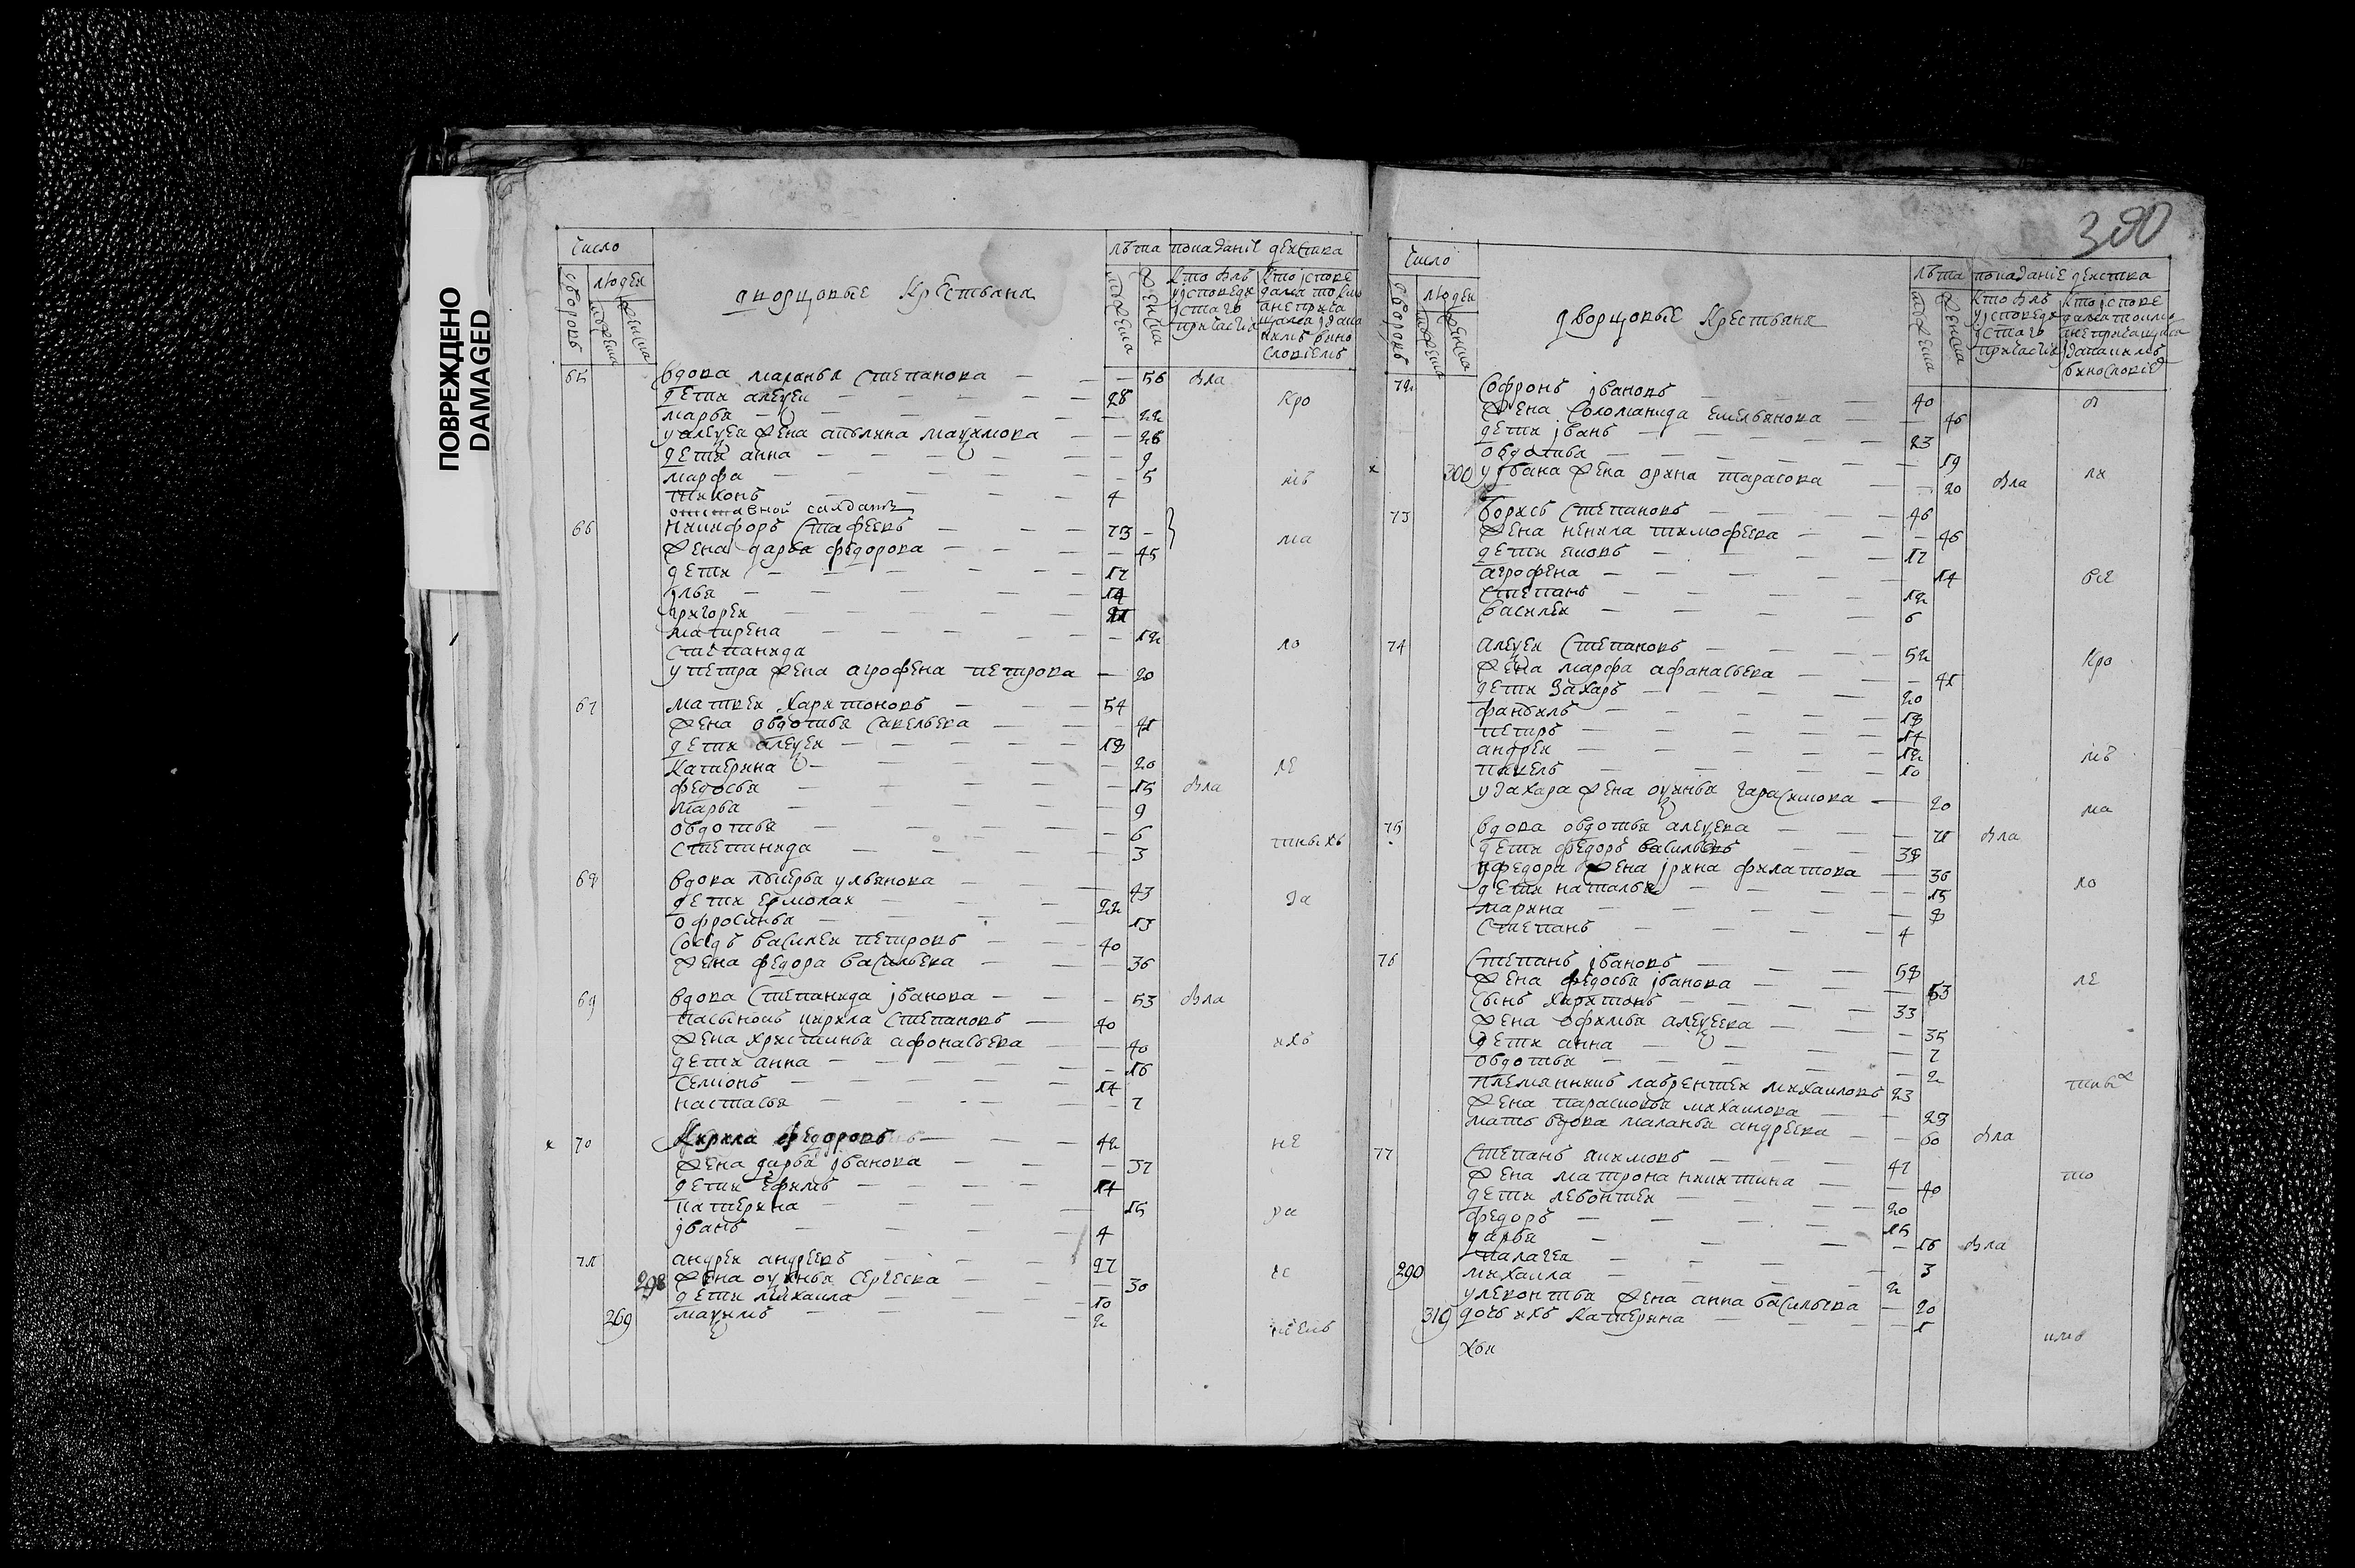 ПОВРЕЖДЕНО
DAMAGED
число
дворовъ
людеи
мужеска
женска
дворцовые крестьяня
лѣта
показание деиства
мужеска
женска
кто былъ
у исповеди
и стаго
причастия
65 вдова маланья степанова — 56 была
дети алеѯеи — 28 кро
марья — 22
у алеѯея жена ульяна маѯимова — 26
дети анна — 9
марфа — 5 мѣ
тихонъ — 4
отставной салдатъ
66 никифоръ 73 ма
жена дарья федорова — 45
дети — 17
илья — 14
григореи — 11
матрена — 12
степанида ло
у петра жена агрофена петрова — 20
67 матвеи харитоновъ — 54
жена овдотья савельева — 41
дети алеѯеи — 18
катерина — 20 ле
федосья — 15 была
марья — 9
овдотья — 6 тныхъ
степанида — 3
68 вдова лукерья ульянова — 43
дети ермолаи — 22 за
офросинья — 13
василеи петровъ — 40
жена федора васильева — 36
69 вдова степанида иванова — 53 была
пасынокъ кирила степановъ — 40
жена христинья афонасьева — 40 ихъ
дети анна — 16
семионъ — 14
настасья — 7
х 70 кирила федоровъ — 42 не
жена дарья иванова — 37
дети ефимъ — 14
катерина — 15 ра
иванъ — 4
71 андреи андреевъ — 27
298 жена оѯинья сергеева — 30
дети михаила — 10
269 маѯимъ — 2
380
число
дворовъ
людеи
мужеска
женска
дворцовые крестьяня
лѣта
показание деиства
мужеска
женска
кто былъ
у исповеди
и стаго
причастия
72 софронъ ивановъ — 40
жена соломанида емельянова — 46
дети иванъ — 23
овдотья — 19
х 300 у ивана жена орина тарасова — 20 была ли
73 борисъ степановъ — 46
жена ненила тимофеева — 46
дети яковъ — 17
агрофена — 14 все
степанъ — 12
василеи — 6
74 алеѯеи степановъ — 52
жена марфа афанасьева — 41 кро
дети захаръ — 20
фанбилъ — 18
петръ — 14
андреи — 12 мѣ
павелъ — 10
у захара жена оѯинья гарасимова — 20 ма
75 вдова овдотья алеѯеева — 71 была
дети федоръ васильевъ — 38
у федора жена ирина филатова — 36
дети наталья — 15 ло
марина — 8
степанъ — 4
76 степанъ ивановъ — 58
жена федосья иванова — 53 ле
сынъ харитонъ — 33
жена офимья алеѯеева — 35
дети анна — 7
овдотья — 2
племянникъ лаврентеи михаиловъ 23 тныx
жена парасковья михаилова — 23
мать вдова маланья андреева — 60 была
77 степанъ якимовъ — 47
жена матрона никитина — 40 то
дети левонтеи — 20
федоръ — 15
дарья — 16 была
палагея — 3
290 михаила — 2
у левонтья жена анна васильева — 20
319 дочь ихъ катерина — 1